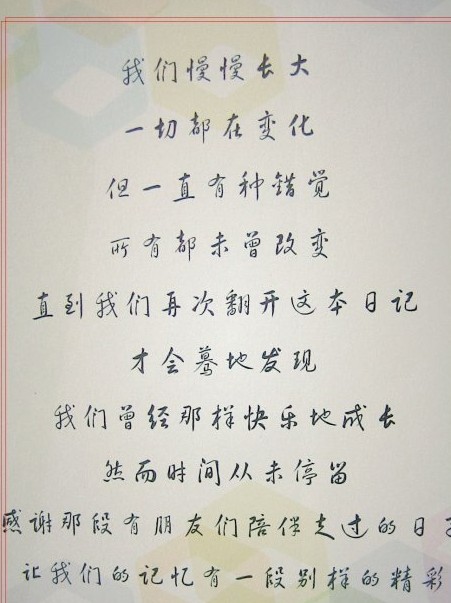 我们慢慢长大
一切都在变化
但一直有种错觉
所有都未曾改变
直到我们再次翻开这本日记
才会蓦地发现
我们曾经那样快乐地成长
然而时间从未停留
感谢那段有朋友们陪伴走过的日子
让我们的记忆有一段别样的精彩